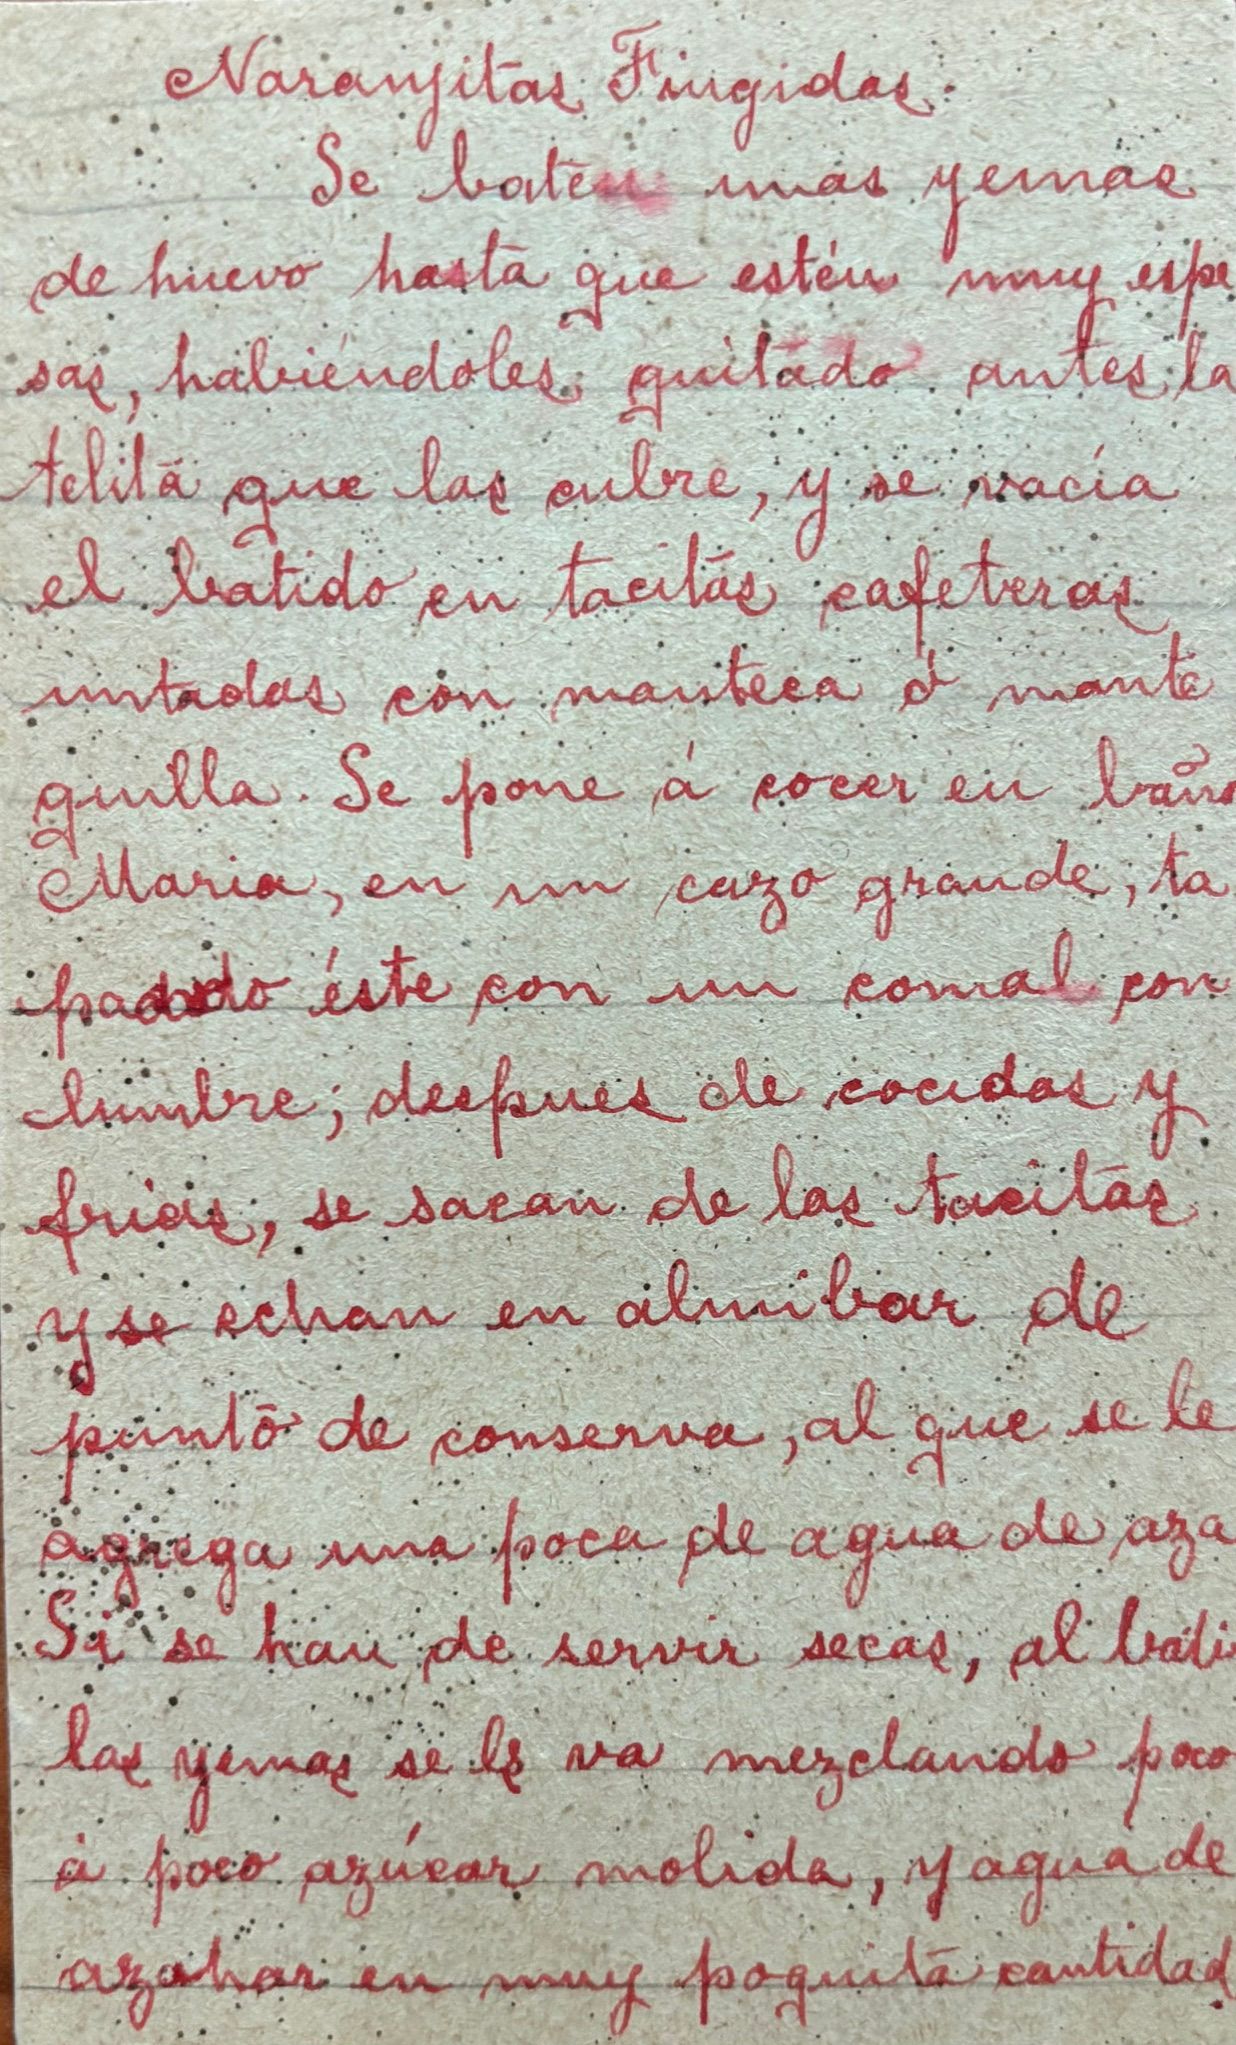 Naranjitas Fingidas.
Se baten unas yemas
de huevo hasta que estén muy espe
sas, habiéndoles quitado antes la
telita que las cubre, y se vacía
el batido en tacitas cafeteras
untadas con manteca ó mante
quilla. Se pone á cocer en baño
Maria, en un cazo grande, ta
pado éste con un comal con
lumbre; despues de cocidas y
frias, se sacan de las tacitas
y se echan en almibar de
punto de conserva, al que se le
agrega una poca de agua de aza
Si se han de servir secas, al bati
las yemas se les va mezclando poco
á poco azúcar molida, y agua de
azahar en muy poquita cantidad